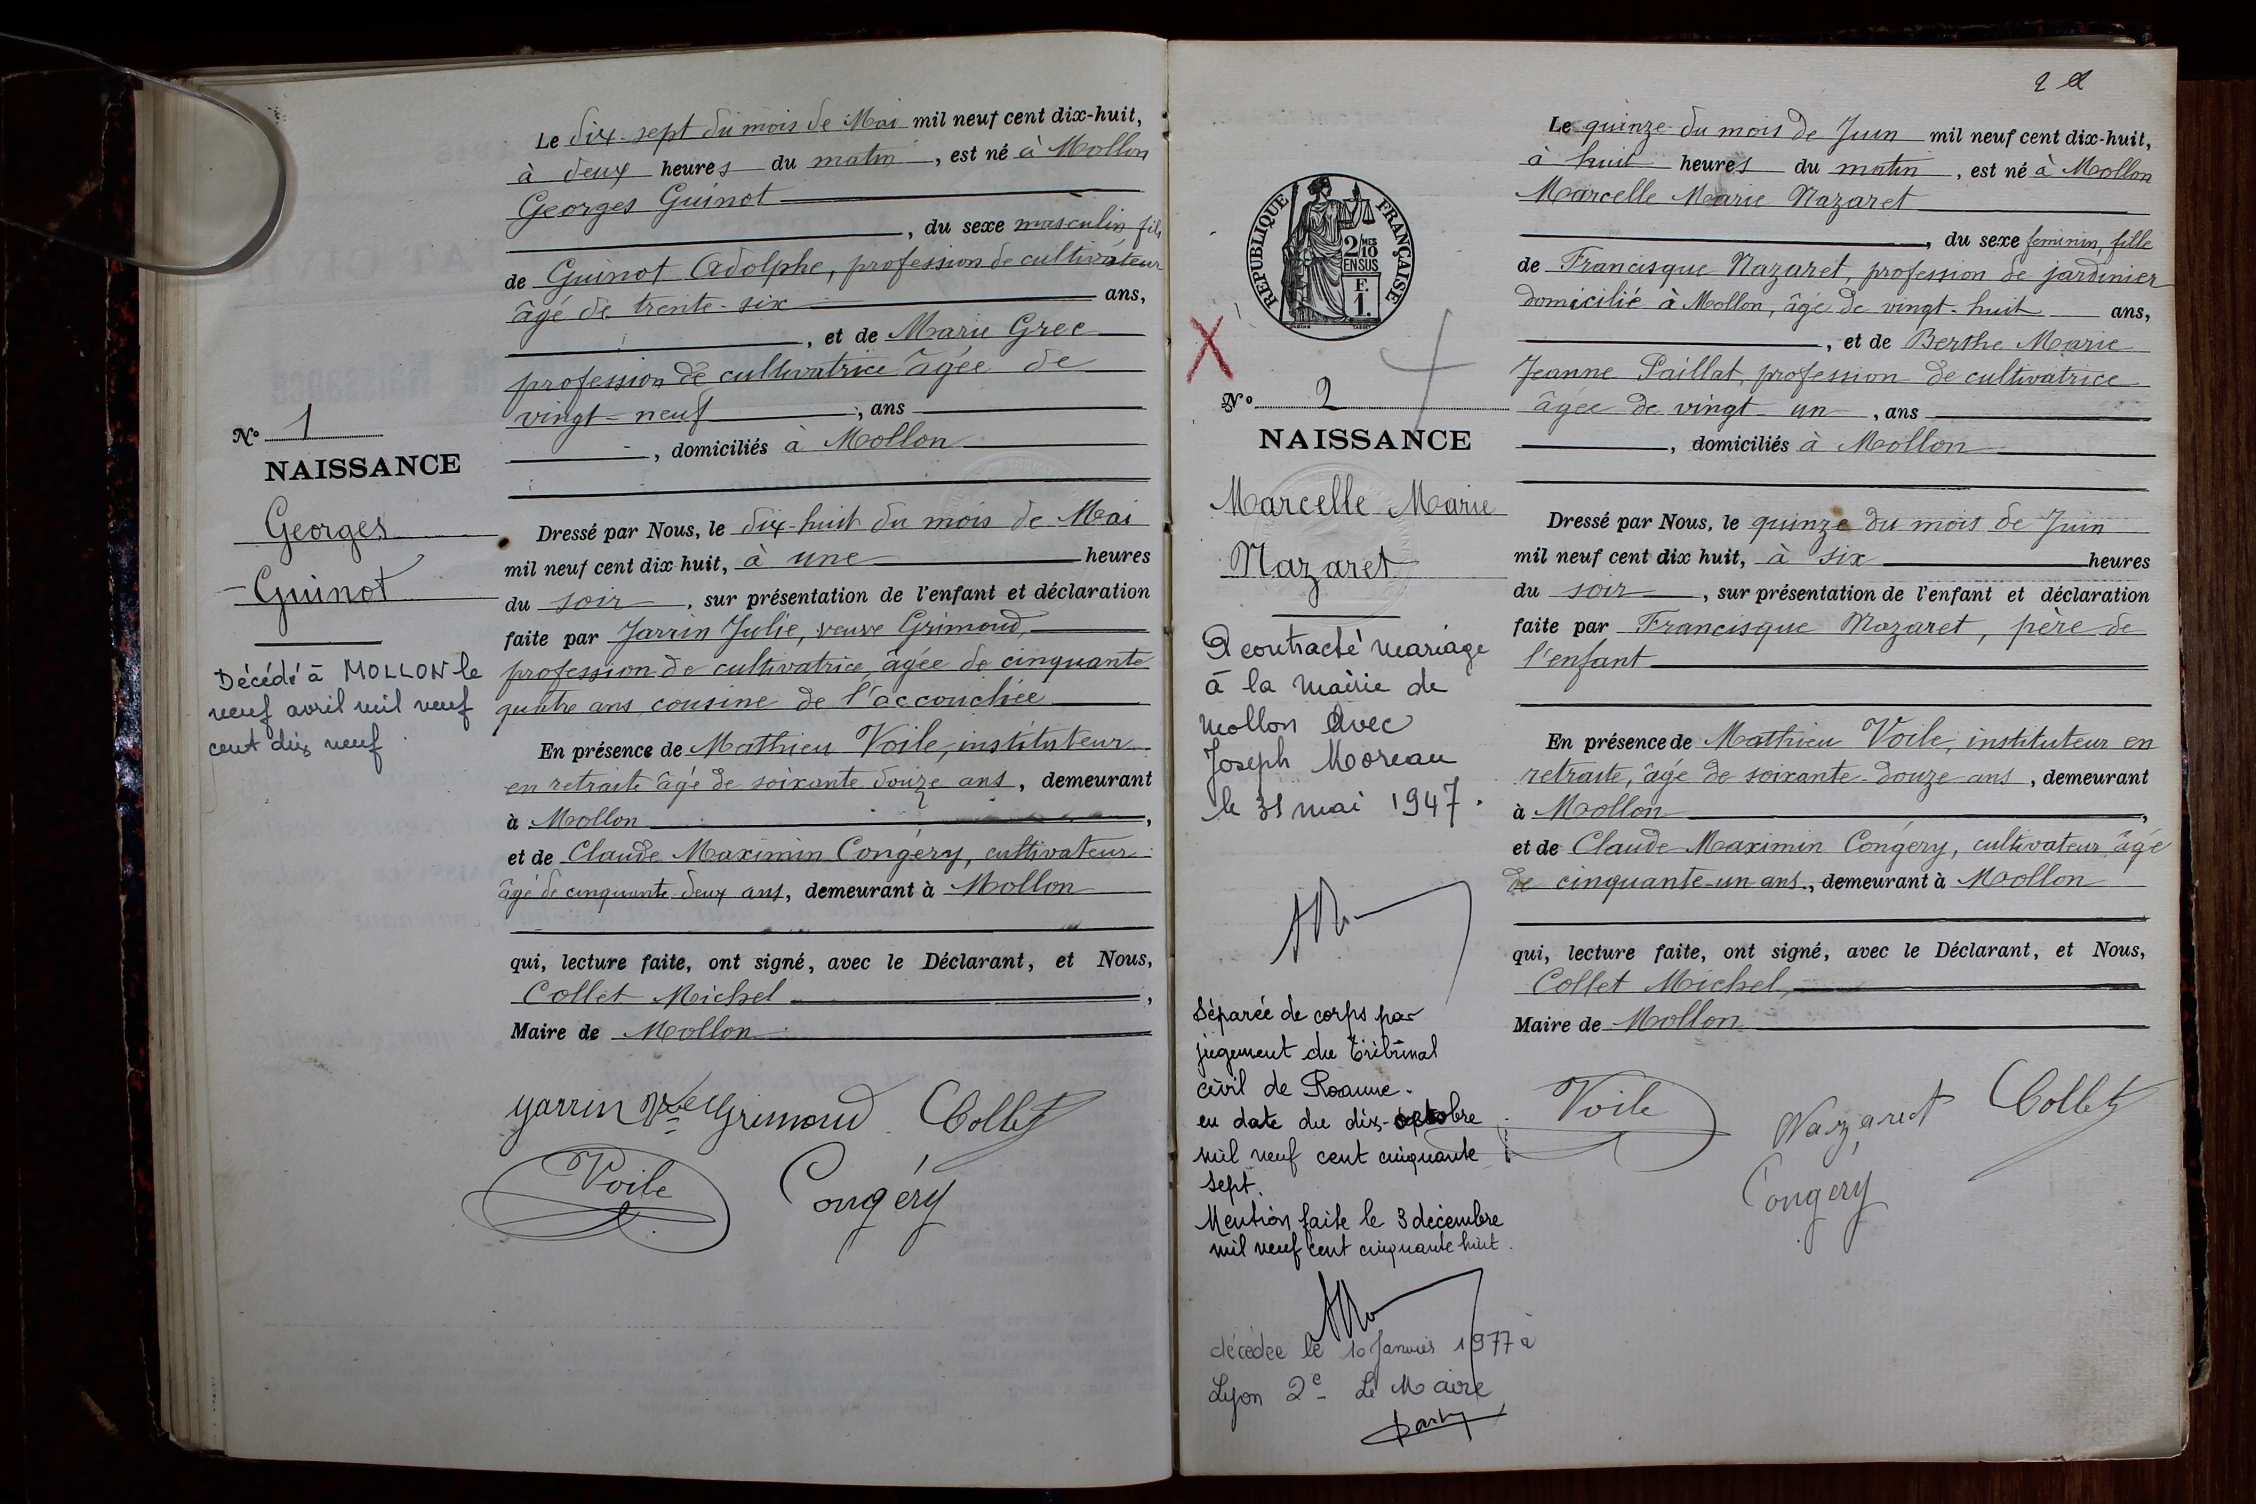 Le dix-sept du mois de Mai mil neuf cent dix-huit,
à deux heures du matin, est né à Mollon
Georges Guinot
, du sexe masculin fils
de Guinot Adolphe, profession de cultivateur
âgé de trente-six ans,
, et de Marie Gree
profession de cultivatrice âgée de
vingt-neuf, ans
, domiciliés à Mollon
N° 1
NAISSANCE
Georges
Guinot
Décédé à MOLLON le
neuf avril mil neuf
cent dix neuf.
Dressé par Nous, le dix-huit du mois de Mai
mil neuf cent dix huit, à une heures
du soir, sur présentation de l'enfant et déclaration
faite par Jarrin Julie, veuve Grimoud,
profession de cultivatrice, âgée de cinquante
quatre ans, cousine de l'accouchée
En présence de Mathieu Voile, instituteur
en retraite âgé de soixante douze ans, demeurant
à Mollon,
et de Claude Maximin Congéry, cultivateur
âgé de cinquante deux ans, demeurant à Mollon
qui, lecture faite, ont signé, avec le Déclarant, et Nous,
Collet Michel,
Maire de Mollon
Jarrin Vve Grimoud Collet
Voile Congéry
2
RÉPUBLIQUE FRANÇAISE
2/10
EN SUS
F.
1.
N° 2
NAISSANCE
Marcelle Marie
Nazaret
A contracté mariage
à la mairie de
Mollon avec
Joseph Moreau
le 31 mai 1947.
Séparée de corps par
jugement du tribunal
civil de Roanne.
en date du dix-octobre
mil neuf cent cinquante
sept.
Mention faite le 3 décembre
mil neuf cent cinquante huit.
décédée le 10 Janvier 1977 à
Lyon 2e Le Maire
Le quinze du mois de Juin mil neuf cent dix-huit,
à huit heures du matin, est né à Mollon
Marcelle Marie Nazaret
, du sexe feminin, fille
de Francisque Nazaret, profession de jardinier
domicilié à Mollon, âgé de vingt-huit ans,
, et de Berthe Marie
Jeanne Paillat, profession de cultivatrice
âgée de vingt-un, ans
, domiciliés à Mollon
Dressé par Nous, le quinze du mois de Juin
mil neuf cent dix huit, à six heures
du soir, sur présentation de l'enfant et déclaration
faite par Francisque Nazaret, père de
l'enfant
En présence de Mathieu Voile, instituteur en
retraite, âgé de soixante-douze ans, demeurant
à Mollon,
et de Claude Maximin Congéry, cultivateur âgé
de cinquante-un ans, demeurant à Mollon
qui, lecture faite, ont signé, avec le Déclarant, et Nous,
Collet Michel,
Maire de Mollon
Voile Nazaret Collet
Congéry